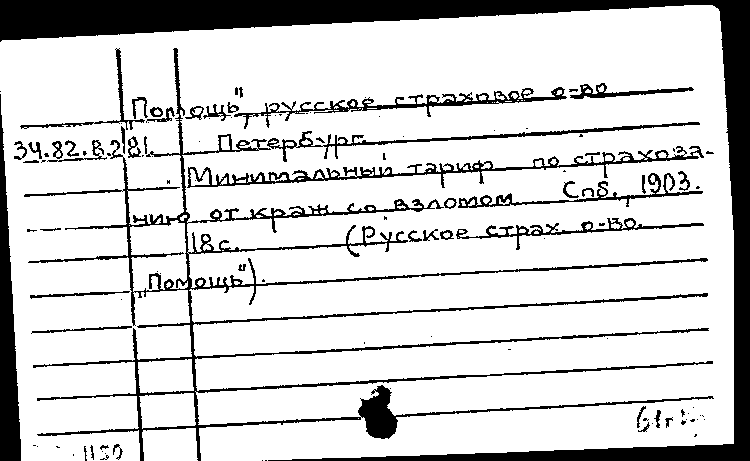 "Помощь", русское страховое о-во
34.82.8.281. Петербург.
Минимальный тариф по страхова-
нию от краж со взломом Спб., 1903.
18 с. (Русское страх. о-во.
"Помощь").
1150